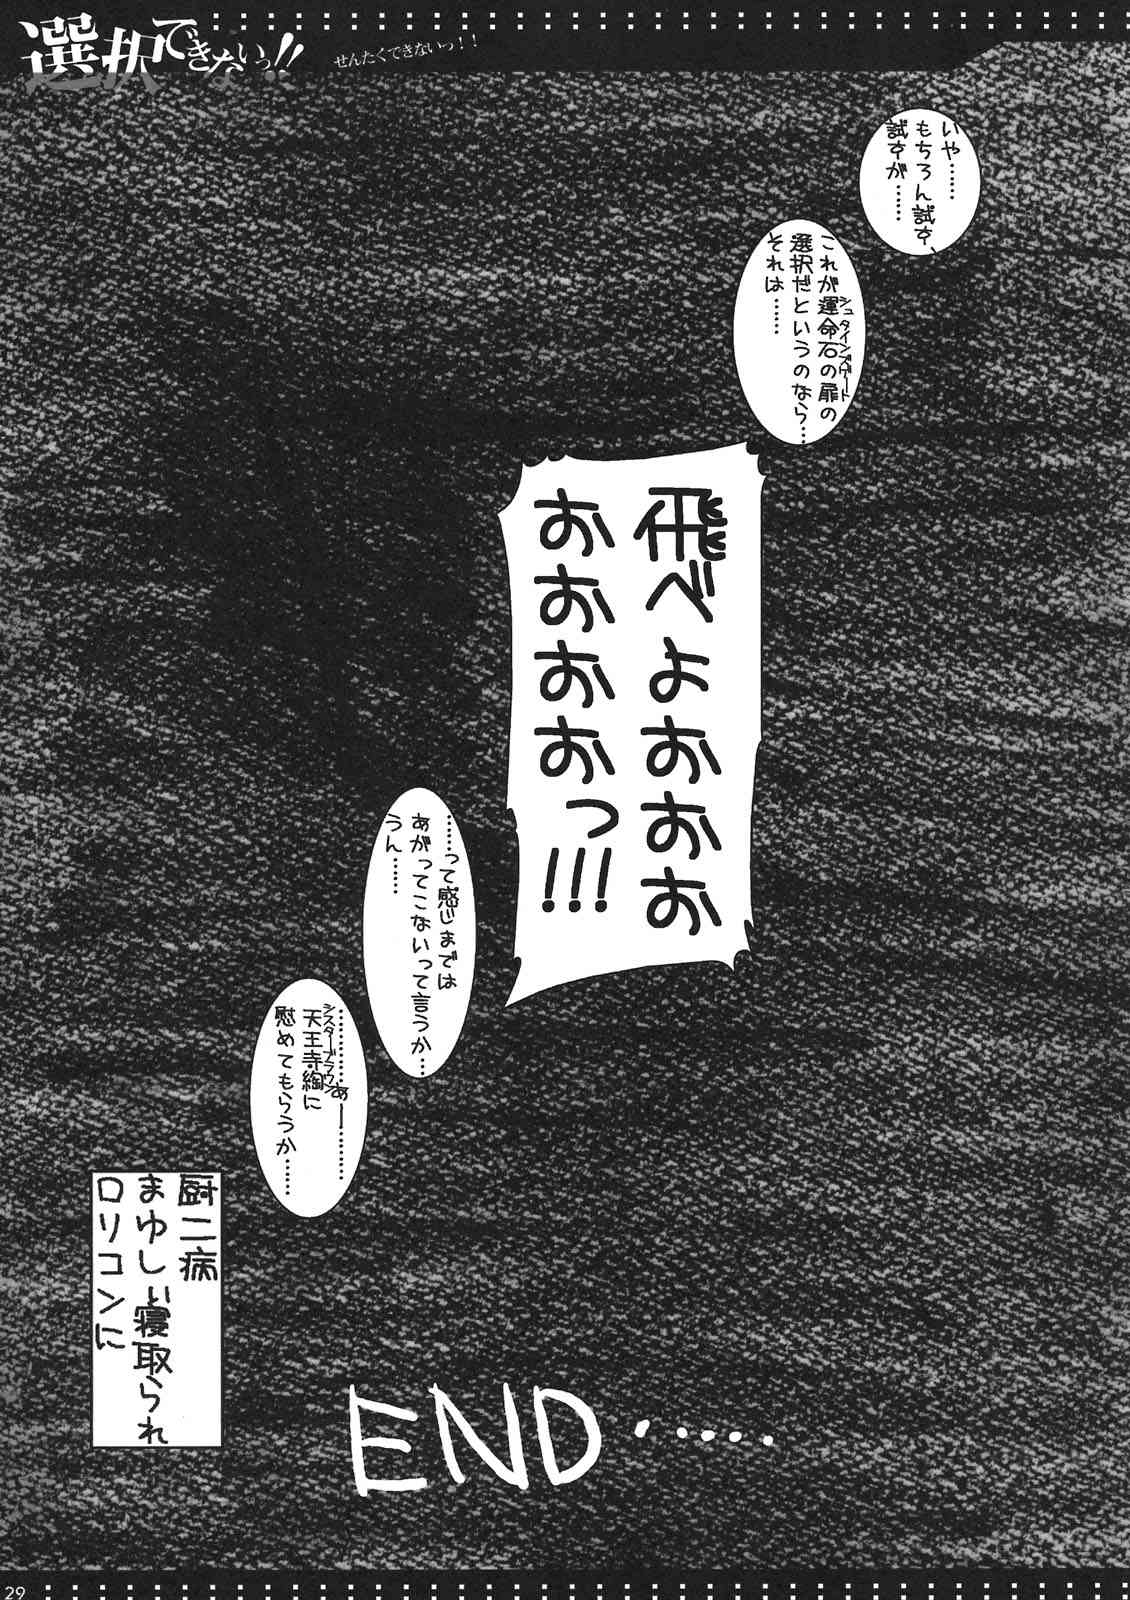 選択できないっ!!
せんたくできないっ！！
いや……
もちろん試す、
試すが……
これが運命石の扉の
シュタインズゲート
選択だというのなら…
それは……
飛べよおおお
おおおおっ!!!
……って感じまでは
あがってこないって言うか…
うん……
…………あー…………
天王寺綯に
シスターブラウン
慰めてもらうか……
厨二病
まゆしぃ寝取られ
ロリコンに
END・・・・・・
29